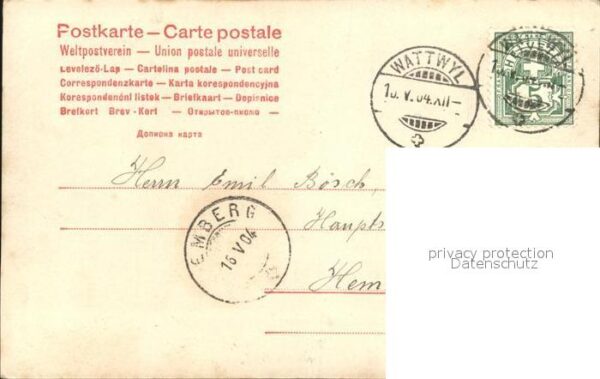 Postkarte – Carte postale
Weltpostverein – Union postale universelle
Levelező-Lap – Cartolina postale – Post card
Correspondenzkarte – Karta korespondencyjna
Korespondenční listek – Briefkaart – Dopisnice
Brefkort Brev-Kort – Открытое письмо
Дописна карта
WATTWYL
15.V.04.XII–
5
Herrn Emil Bösch,
Haupts
Hem
EMBERG
16 V 04
privacy protection
Datenschutz